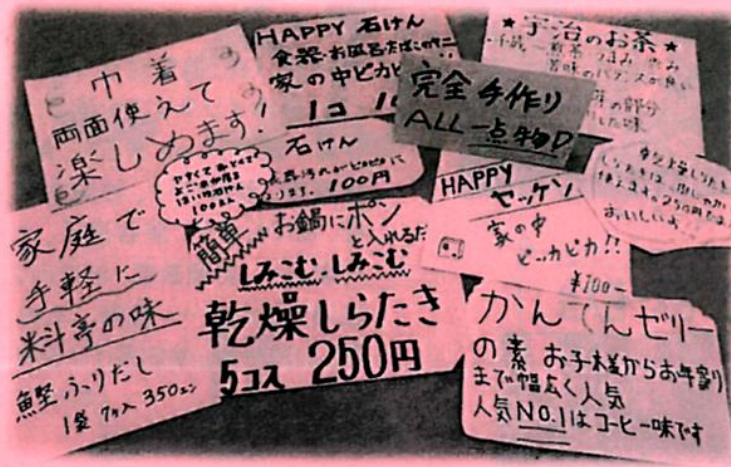 巾着
両面使えて
楽しめます!
HAPPY 石けん
食器・お風呂・たばこのヤニ
家の中ピカピ
1コ
★宇治のお茶★
完全手作り
ALL一点物D
石けん
100円
HAPPY
セッケン
家の中
ピッカピカ!!
¥100-
おいしいよ
家庭で
手軽に
料亭の味
鰹ふりだし
1袋 7ヶ入 350エン
簡単
お鍋にポン
と入れるだ
しみこむ・しみこむ
乾燥しらたき
5コ入 250円
かんてんゼリー
の素 お子様からお年寄り
まで幅広く人気
人気NO.1はコーヒー味です